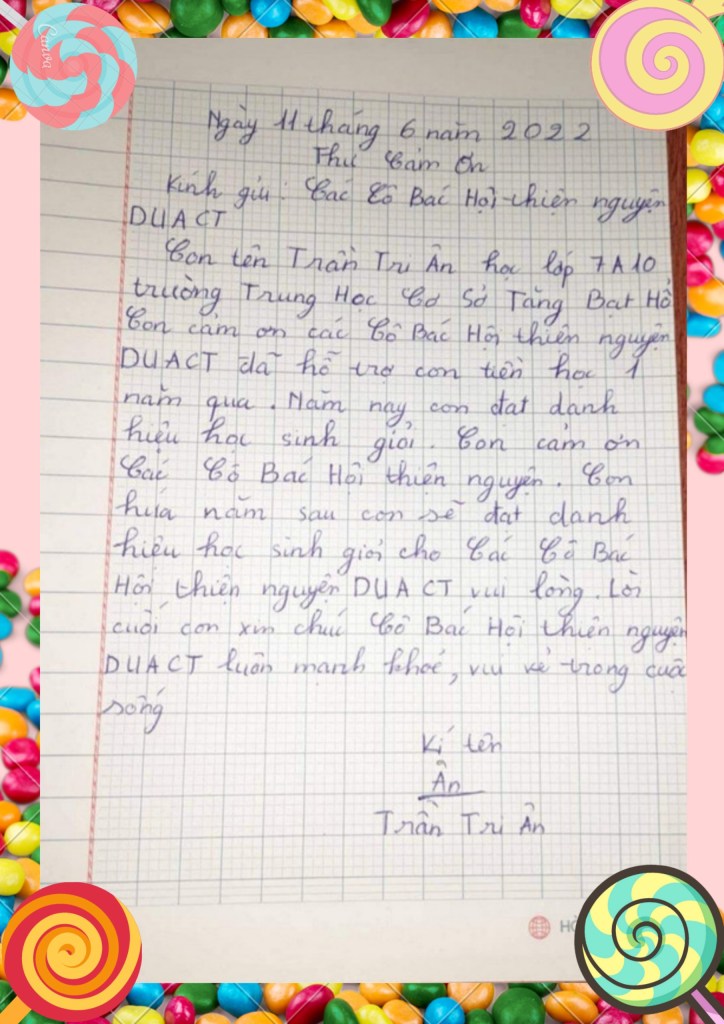 Canva
Ngày 11 tháng 6 năm 2022
Thư Cảm Ơn
Kính gửi: Các Cô Bác Hội thiện nguyện
DUACT
Con tên Trần Tri Ân học lớp 7A10
trường Trung Học Cơ Sở Tăng Bạt Hổ
Con cảm ơn các Cô Bác Hội thiện nguyện
DUACT đã hỗ trợ con tiền học 1
năm qua. Năm nay con đạt danh
hiệu học sinh giỏi. Con cảm ơn
Các Cô Bác Hội thiện nguyện. Con
hứa năm sau con sẽ đạt danh
hiệu học sinh giỏi cho Các Cô Bác
Hội thiện nguyện DUACT vui lòng. Lời
cuối con xin chúc Cô Bác Hội thiện nguyện
DUACT luôn mạnh khoẻ, vui vẻ trong cuộc
sống
Kí tên
Ân
Trần Tri Ân